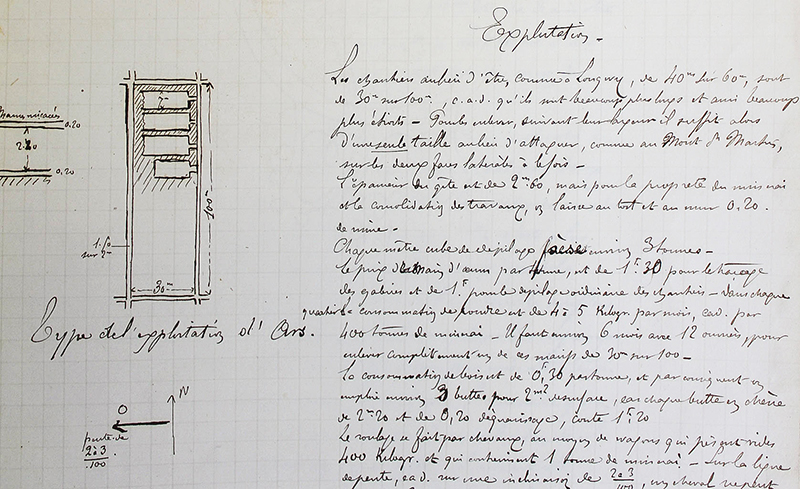 Exploitation -
Les chantiers au lieu d'être comme à Longwy, de 40m sur 60m, sont
de 30m sur 100m, c.a.d. qu'ils sont beaucoup plus longs et aussi beaucoup
plus étroits - Pour les enlever, suivant leur largeur il suffit alors
d'une seule taille au lieu d'attaquer, comme au Mont St Martin,
sur les deux faces latérales à la fois -
L'épaisseur du gîte est de 2m60, mais pour la propreté du minerai
et la consolidation des travaux, on laisse au toit et au mur 0,20
de mine -
Chaque mètre cube de dépilage pèse environ 3 tonnes -
Le prix de main d'œuvre par tonne, est de 1f.30 pour le traçage
des galeries et de 1f pour le dépilage ordinaire des chantiers - Dans chaque
quartier la consommation de poudre est de 4 à 5 Kilogr. par mois, c.a.d. par
400 tonnes de minerai - Il faut environ 6 mois avec 12 ouvriers, pour
enlever complètement un de ces massifs de 30m sur 100 -
La consommation de bois est de 0f,30 par tonne, et par conséquent on
emploie environ 3 buttes pour 2m2 de surface, car chaque butte en chêne
de 2m20 et de 0,20 d'équarrissage, coûte 1f.20
Le roulage se fait par chevaux, au moyen de wagons qui pèsent vides
400 Kilogr. et qui contiennent 1 tonne de minerai - Sur la ligne
de pente, c.a.d. sur une inclinaison de 2 à 3/100, un cheval ne peut
Marnes micacées
0.20
2.20
0.20
100m
1.50
sur 2m
30m
Type de l'exploitation d'Ars.
N
O
pente de
2 à 3
100